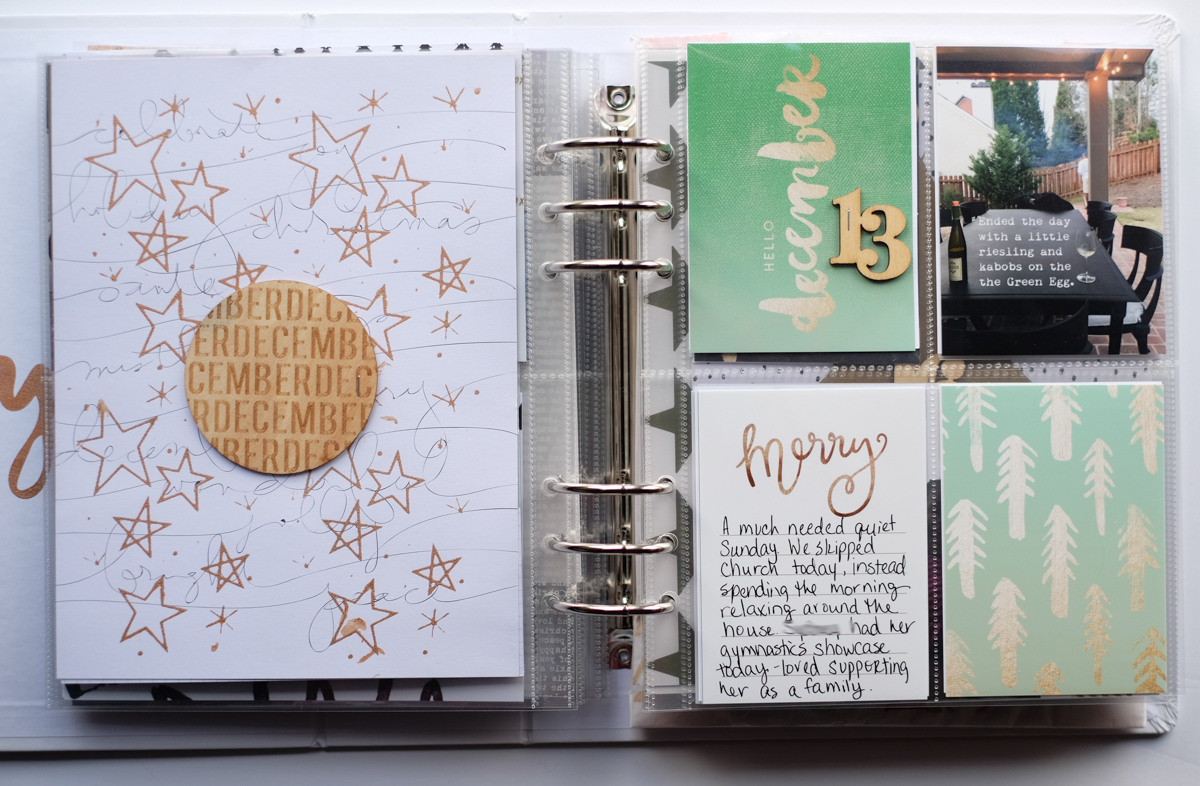 celebrate joy
holiday christmas
santa
BERDEC
ERDECEMB
CEMBERDEC
RDECEMBER
BERDEC
december
peace
HELLO
december
13
"Ended the day
with a little
riesling and
kabobs on the
the Green Egg.
merry
A much needed quiet
Sunday. We skipped
church today, instead
spending the morning
relaxing around the
house. had her
gymnastics showcase
today - loved supporting
her as a family.